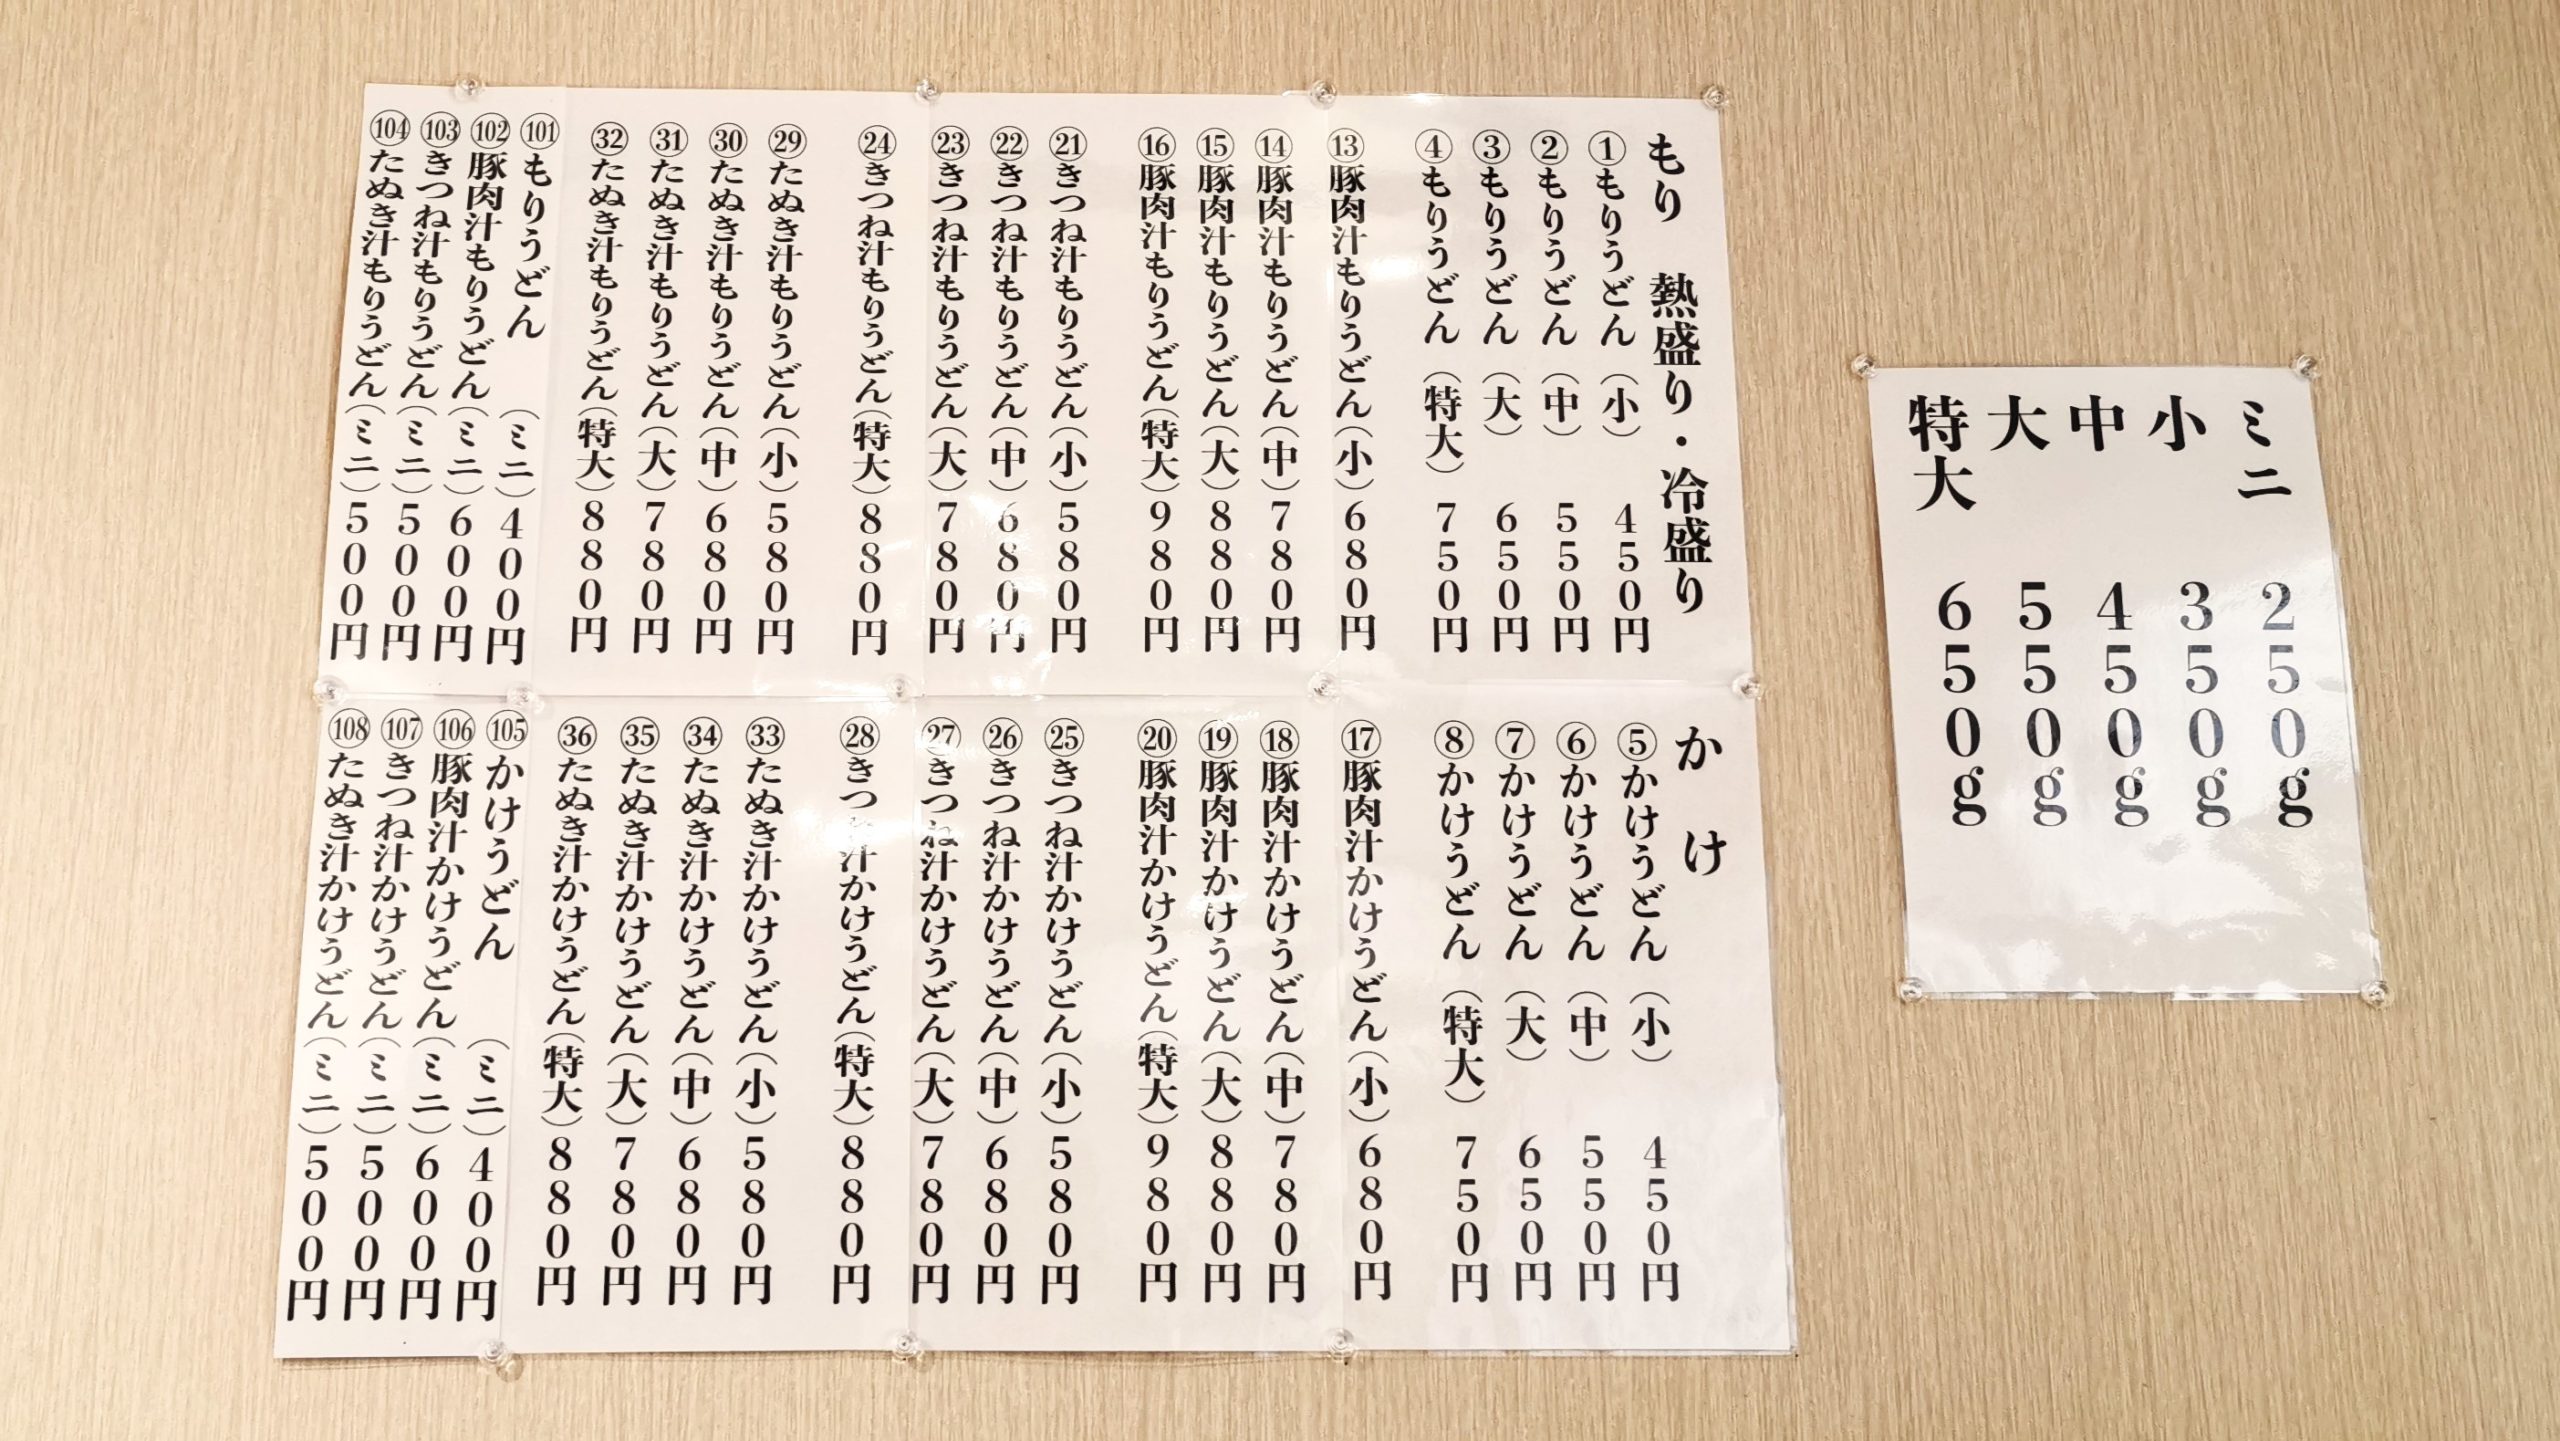 もり　熱盛り・冷盛り
①もりうどん（小）450円
②もりうどん（中）550円
③もりうどん（大）650円
④もりうどん（特大）750円
⑬豚肉汁もりうどん（小）680円
⑭豚肉汁もりうどん（中）780円
⑮豚肉汁もりうどん（大）880円
⑯豚肉汁もりうどん（特大）980円
㉑きつね汁もりうどん（小）580円
㉒きつね汁もりうどん（中）680円
㉓きつね汁もりうどん（大）780円
㉔きつね汁もりうどん（特大）880円
㉙たぬき汁もりうどん（小）580円
㉚たぬき汁もりうどん（中）680円
㉛たぬき汁もりうどん（大）780円
㉜たぬき汁もりうどん（特大）880円
(101)もりうどん（ミニ）400円
(102)豚肉汁もりうどん（ミニ）600円
(103)きつね汁もりうどん（ミニ）500円
(104)たぬき汁もりうどん（ミニ）500円
かけ
⑤かけうどん（小）450円
⑥かけうどん（中）550円
⑦かけうどん（大）650円
⑧かけうどん（特大）750円
⑰豚肉汁かけうどん（小）680円
⑱豚肉汁かけうどん（中）780円
⑲豚肉汁かけうどん（大）880円
⑳豚肉汁かけうどん（特大）980円
㉕きつね汁かけうどん（小）580円
㉖きつね汁かけうどん（中）680円
㉗きつね汁かけうどん（大）780円
㉘きつね汁かけうどん（特大）880円
㉝たぬき汁かけうどん（小）580円
㉞たぬき汁かけうどん（中）680円
㉟たぬき汁かけうどん（大）780円
㊱たぬき汁かけうどん（特大）880円
(105)かけうどん（ミニ）400円
(106)豚肉汁かけうどん（ミニ）600円
(107)きつね汁かけうどん（ミニ）500円
(108)たぬき汁かけうどん（ミニ）500円
ミニ　250g
小　350g
中　450g
大　550g
特大　650g